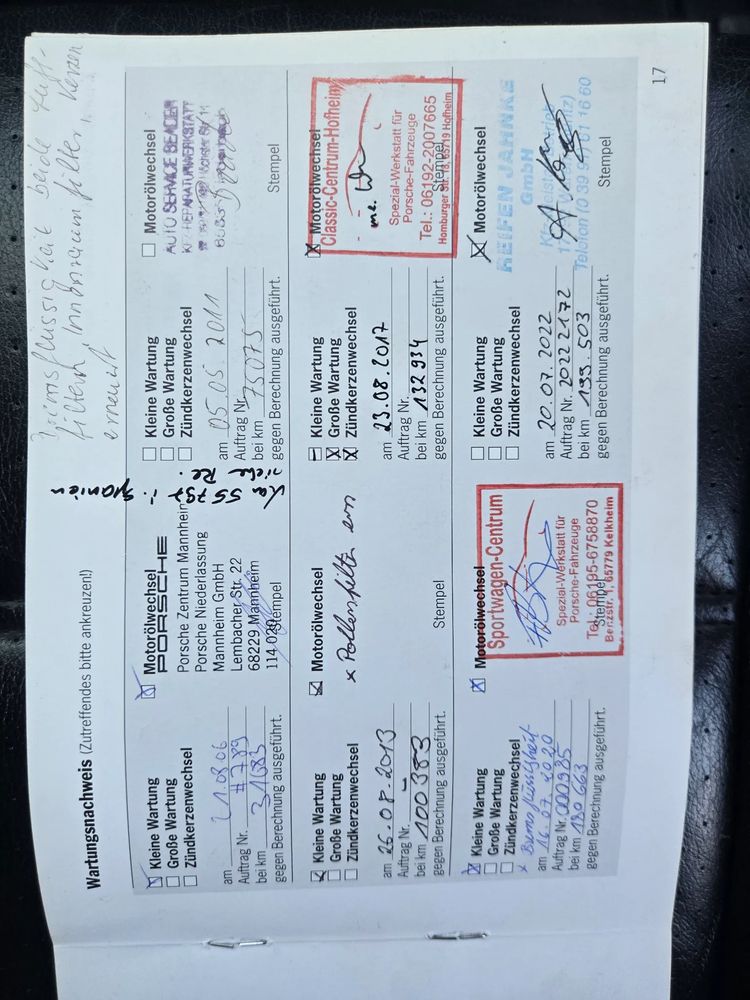 Wartungsnachweis (Zutreffendes bitte ankreuzen!)
Bremsflüssigkeit beide Luft-
filtern, Innenraumfilter, Kerzen
erneuert
Kleine Wartung
Große Wartung
Zündkerzenwechsel
am 21.08.06
Auftrag Nr. #789
bei km 31683
gegen Berechnung ausgeführt.
Motorölwechsel
PORSCHE
Porsche Zentrum Mannheim
Porsche Niederlassung
Mannheim GmbH
Lembacher Str. 22
68229 Mannheim
114 020
Stempel
km 55797 i. Spanien
siehe Re.
Kleine Wartung
Große Wartung
Zündkerzenwechsel
am 05.05.2011
Auftrag Nr.
bei km 75075
gegen Berechnung ausgeführt.
Motorölwechsel
AUTO SERVICE
Stempel
Kleine Wartung
Große Wartung
Zündkerzenwechsel
am 26.08.2013
Auftrag Nr. –
bei km 100383
gegen Berechnung ausgeführt.
Motorölwechsel
x Pollenfilter ern
Stempel
Kleine Wartung
Große Wartung
Zündkerzenwechsel
am 23.08.2017
Auftrag Nr.
bei km 132934
gegen Berechnung ausgeführt.
Motorölwechsel
Classic-Centrum-Hofheim
Spezial-Werkstatt für
Porsche-Fahrzeuge
Tel.: 06192-2007665
Homburger Str. 18, 65719 Hofheim
Stempel
Kleine Wartung
Große Wartung
Zündkerzenwechsel
x Bremsflüssigkeit
am 16.07.2020
Auftrag Nr. 000985
bei km 180663
gegen Berechnung ausgeführt.
Motorölwechsel
Sportwagen-Centrum
Spezial-Werkstatt für
Porsche-Fahrzeuge
Tel.: 06195-6758870
Benzstr. 1, 65779 Kelkheim
Stempel
Kleine Wartung
Große Wartung
Zündkerzenwechsel
am 20.07.2022
Auftrag Nr. 20222172
bei km 193.503
gegen Berechnung ausgeführt.
Motorölwechsel
REIFEN JAHNKE
GmbH
Stempel
17